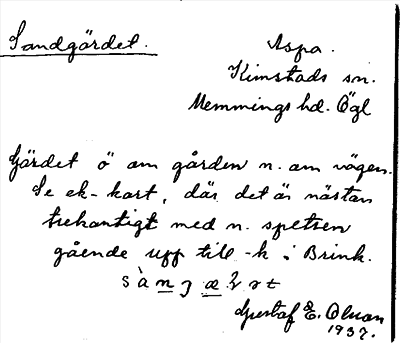 Sandgärdet.
Aspa.
Kimstads sn.
Memmings hd. Ögl
Gärdet ö om gården n. om vägen.
Se ek-kart, där det är nästan
trehantigt med n. spetsen
gående upp till -k i Brink.
Gustaf E. Olson
1937.